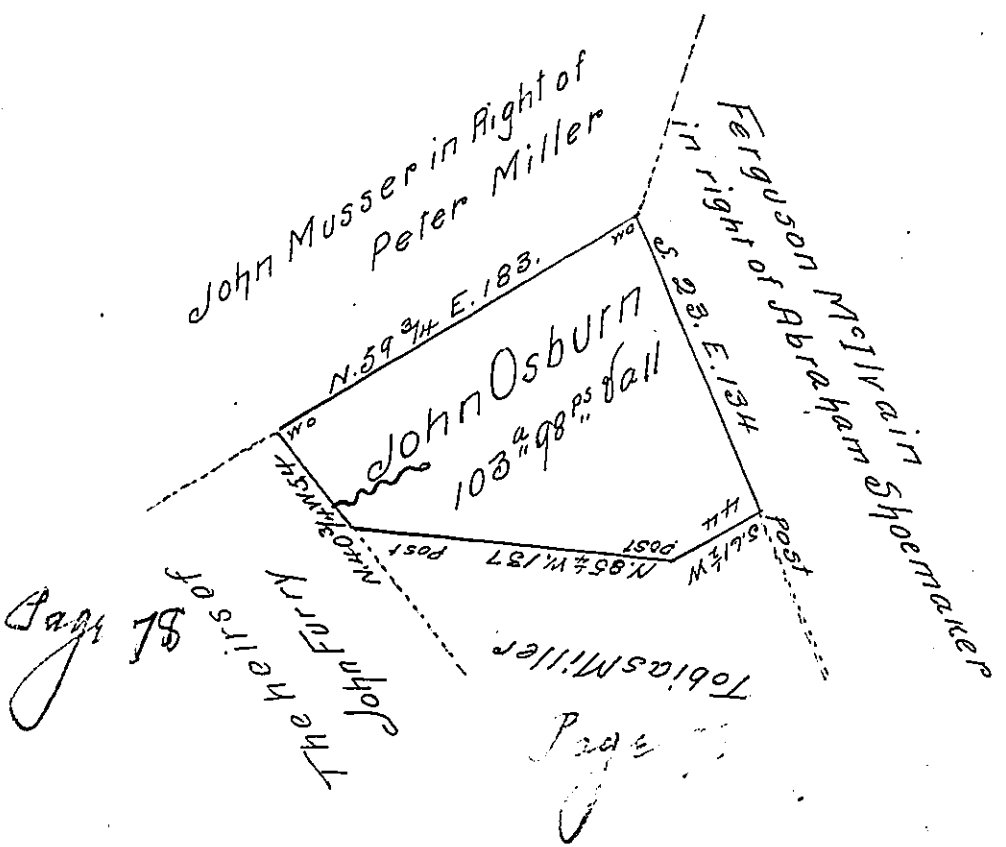 John Musser in Right of
Peter Miller
Ferguson McIlvain
in right of Abraham Shoemaker
N. 59 3/4 E. 183.
WO
WO
S. 23. E. 134
John Osburn
103 a 98 ps & all
N 40 3/4 W 54
POST
N. 85 1/4 W. 137
POST
S. 61 1/2 W
44
Post
The heirs of
John Furry
Page 78
Tobias Miller
Page